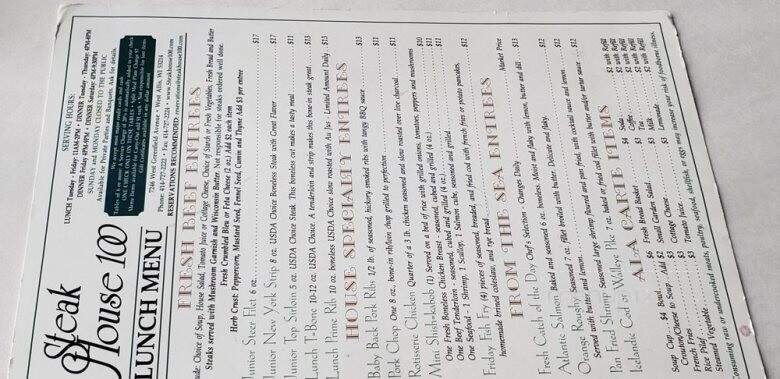 Steak
House 100
LUNCH MENU
SERVING HOURS:
LUNCH Tuesday - Friday: 11AM-2PM • DINNER Tuesday - Thursday: 4PM-8PM
DINNER Friday 4PM-9PM • DINNER Saturday: 4PM-8:30PM
SUNDAY and MONDAY CLOSED TO THE PUBLIC
Available for Private Parties and Banquets, Ask for details.
7246 West Greenfield Avenue • West Allis, WI 53214
Phone: 414-727-2222 • Fax: • www.Steakhouse100.com
RESERVATIONS RECOMMENDED: reservations@steakhouse100.com
FRESH BEEF ENTREES
Choice of Soup, House Salad, Tomato Juice or Cottage Cheese, Choice of Starch or Fresh Vegetables, Fresh Bread and Butter
Steaks served with Mushroom Garnish and Wisconsin Butter. Not responsible for steaks ordered well done.
Fresh Crumbled Bleu or Feta Cheese (2 oz.) Add $2 each item
Herb Crust: Peppercorn, Mustard Seed, Fennel Seed, Cumin and Thyme Add $3 per entree
Junior Steer Filet 6 oz. $17
Junior New York Strip 8 oz. USDA Choice Boneless Steak with Great Flavor $17
Junior Top Sirloin 5 oz. USDA Choice Steak. This boneless cut makes a tasty meal $11
Lunch T-Bone 10-12 oz. USDA Choice. A tenderloin and strip makes this bone-in steak great $15
Lunch Prime Rib 10 oz. boneless USDA Choice slow roasted with Au Jus - Limited Amount Daily $15
HOUSE SPECIALTY ENTREES
Baby Back Pork Ribs 1/2 lb. of seasoned, hickory smoked ribs with tangy BBQ sauce $13
Pork Chop One 8 oz., bone-in ribeye pork chop grilled to perfection $11
Rotisserie Chicken Quarter of a 3 lb. chicken seasoned and slow roasted over live charcoal $11
Mini Shish-kabob (1) Served on a bed of rice with grilled onions, tomatoes, peppers and mushrooms
One Fresh Boneless Chicken Breast - seasoned, cubed and grilled (4 oz.) $10
One Beef Tenderloin - seasoned, cubed and grilled (4 oz.) $11
One Seafood - 1 Shrimp, 1 Scallop, 1 Salmon cube, seasoned and grilled $11
Friday Fish Fry (4) pieces of seasoned, breaded, and fried cod with french fries or potato pancakes, $12
homemade brined coleslaw, and rye bread
FROM THE SEA ENTREES
Fresh Catch of the Day Chef's Selection - Changes Daily Market Price
Atlantic Salmon Baked and seasoned 6 oz. boneless. Moist and flaky with lemon, butter and dill $13
Orange Roughy Seasoned 7 oz. fillet broiled with butter. Delicate and flaky. $12
Served with butter and lemon.
Pan Fried Shrimp Seasoned large shrimp floured and pan fried with cocktail sauce and lemon $12
Icelandic Cod or Walleye Pike 7 oz. baked or fried cod fillet with butter and/or tartar sauce $12
A LA CARTE ITEMS
Soup Cup $4 Bowl Add $2
Crouton/Cheese to Soup $3
French Fries $3
Rice Pilaf
Steamed Vegetable
Fresh Bread Basket $4
Small Garden Salad $6
Cottage Cheese
Tomato Juice
Soda $2 with Refill
Coffee $2 with Refill
Tea $2 with Refill
Milk
Lemonade
Consuming raw or undercooked meats, poultry, seafood, shellfish or eggs may increase your risk of foodborne illness.